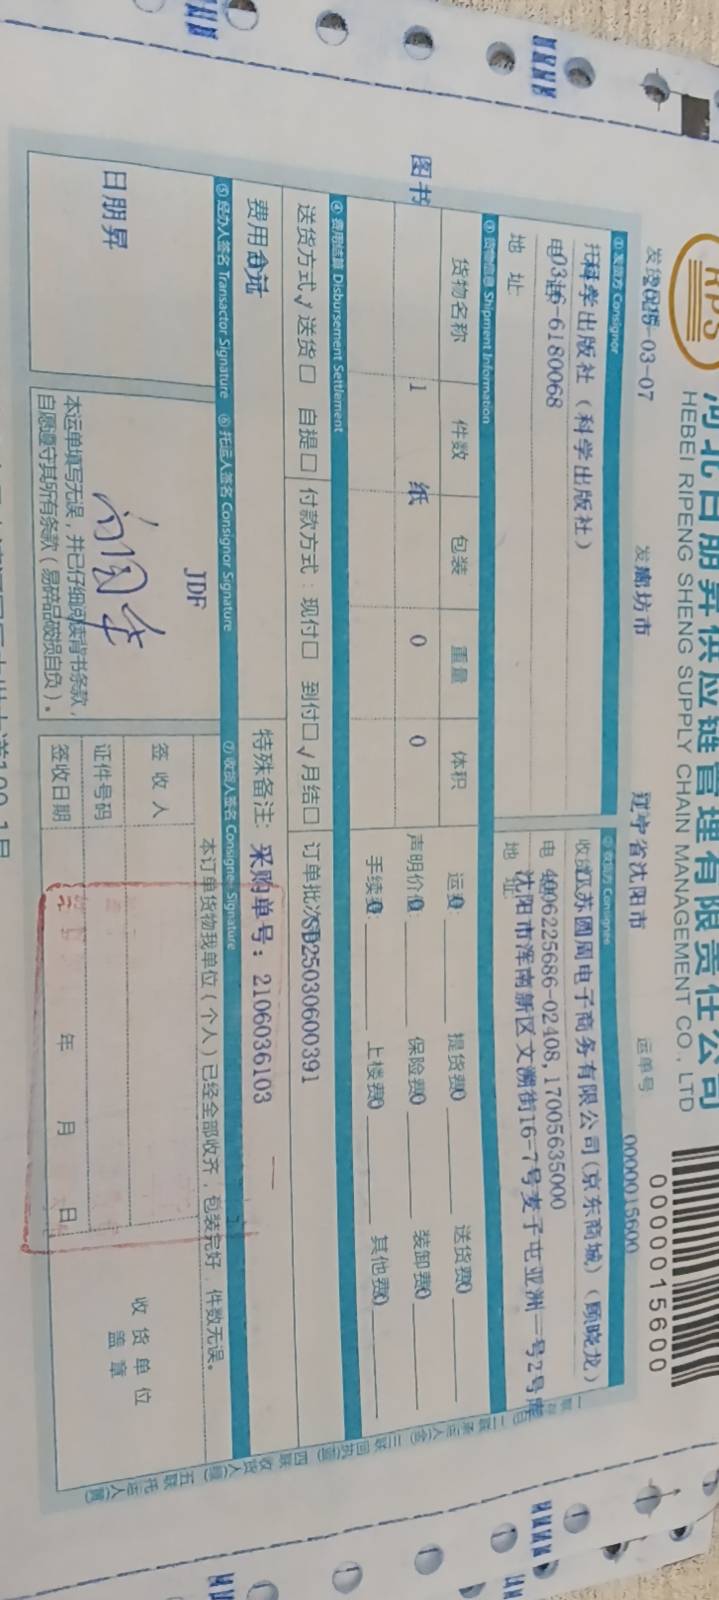 RPS
河北日朋昇供应链管理有限责任公司
HEBEI RIPENG SHENG SUPPLY CHAIN MANAGEMENT CO., LTD
0000015600
发货日期 2025-03-07 廊坊市 辽宁省沈阳市 运单号 0000015600
① 发货方 Consignor ② 收货方 Consignee
科学出版社（科学出版社）
江苏圆周电子商务有限公司(京东商城)（顾晓龙）
电话 0316-6180068
电话 4006225686-02408,17005635000
地 址
地 址 沈阳市浑南新区文溯街16-7号麦子屯亚洲一号2号库
③ 货物信息 Shipment Information
货物名称 件数 包装 重量 体积 运费: 0 提货费 0 送货费 0
图书 1 纸 0 0 声明价值 0 保险费 0 装卸费 0
手续费: 0 上楼费 0 其他费 0
④ 费用结算 Disbursement Settlement
送货方式 √ 送货□ 自提□ 付款方式：现付□ 到付□ √ 月结□ 订单批次 SD25030600391
费用合计 0元 特殊备注: 采购单号: 2106036103
⑤ 经办人签名 Transactor Signature ⑥ 托运人签名 Consignor Signature ⑦ 收货人签名 Consignee Signature
本订单货物我单位(个人)已经全部收齐，包装完好，件数无误。
JDF
日朋昇
签 收 人
证件号码
签收日期 年 月 日
收货单位
盖 章
本运单填写无误，并已仔细阅读背书条款，
自愿遵守其所有条款(易碎品破损自负)。